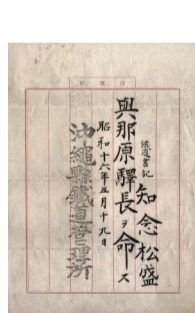 鐵道書記 知念松盛
與那原驛長ヲ命ス
昭和十六年五月十九日
沖繩縣鐵道管理所